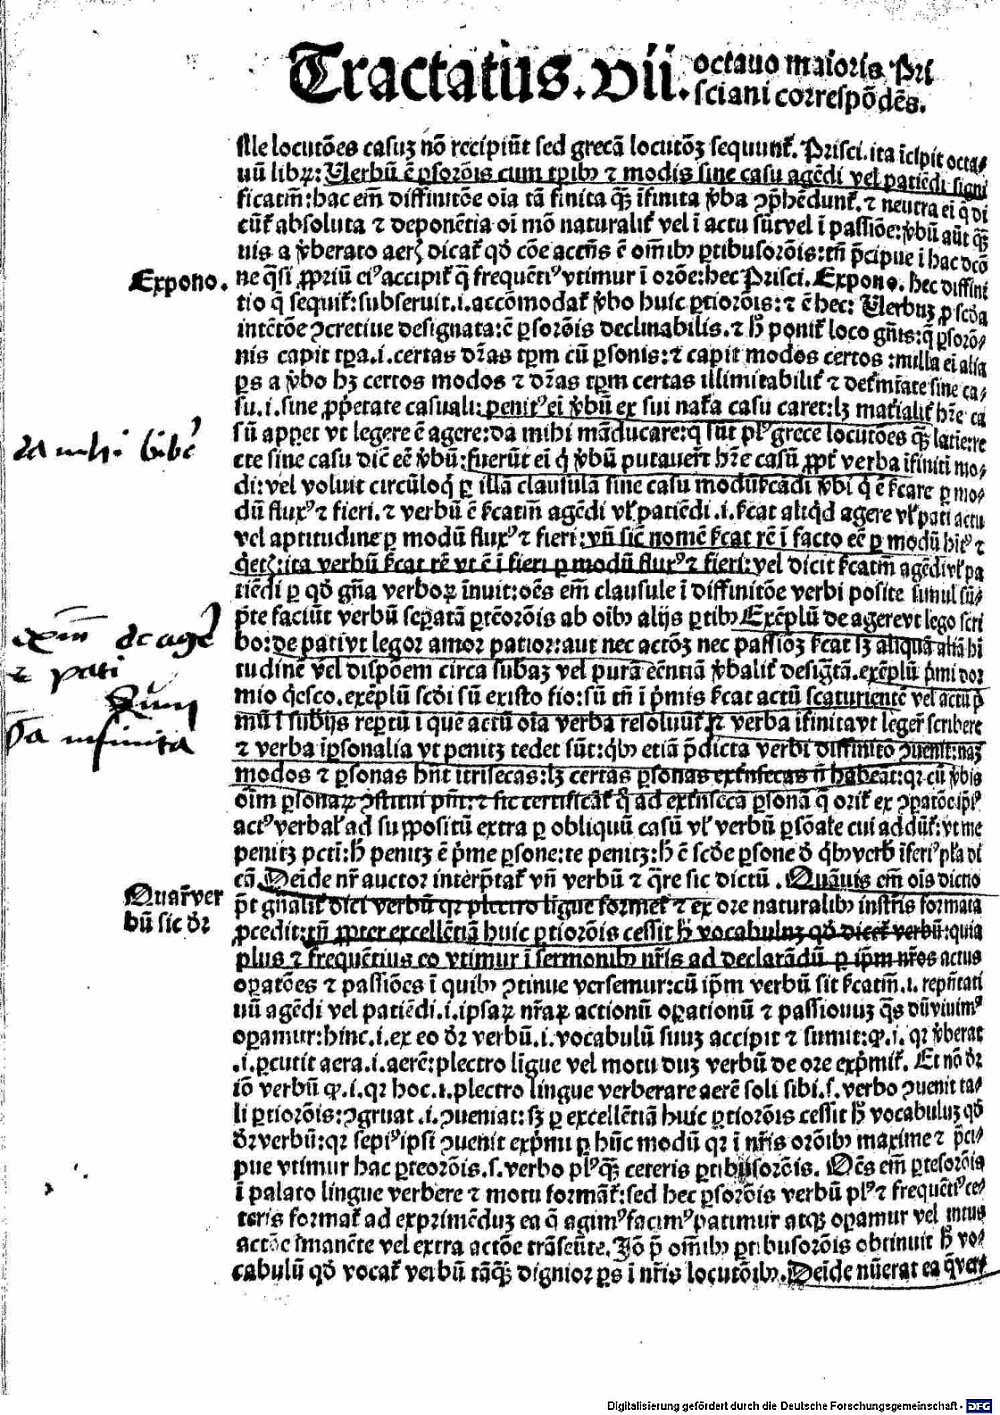 Tractatus.vii. octauo maioris Pri
sciani correspōdēs.
ille locutōes casuȝ nō recipiūt sed grecā locutōȝ sequunt̄. Prisci. ita īcipit octa/
uū libꝝ: Uerbū ē ꝑsorōis cum tꝑibꝰ ⁊ modis sine casu agēdi vel patiēdi signi
ficatim̄: hac em̄ diffinitōe oīa tā finita qꝫ īfinita ꝟba ꝯp̄hēdunt̄. ⁊ neutra ei q̄ di
cūt̄ absoluta ⁊ deponētia oī mō naturalit̄ vel ī actu sūt vel ī passiōe: ꝟbū aūt qꝫ
uis a ꝟberato aerꝭ dicat̄ qd̄ cōe accn̄s ē om̄ibꝰ ꝑtibusorōis: tn̄ p̄cipue ī hac dcōo
Expono. ne q̄si ꝓpriū eiꝰ accipit̄ q̄ frequētiꝰ vtimur ī orōe: hec Prisci. Expono. hec diffini
tio q̄ sequit̄: subseruit .i. accōmodat̄ ꝟbo huic ꝑtiorōis: ⁊ ē hec: Uerbuȝ ꝑ scd̄a
intētōe ꝯcretiue designata: ē ꝑsorōis declinabilis. ⁊ h̄ ponit̄ loco gn̄is: q̄ ꝑsorō/
nis capit tꝑa .i. certas dr̄as tꝑm cū ꝑsonis: ⁊ capit modos certos: nulla ei alia
ꝑs a ꝟbo hȝ certos modos ⁊ dr̄as tꝑm certas illimitabilit̄ ⁊ det̄mīate sine ca/
su .i. sine ꝓp̄etate casuali: penitꝰ ei ꝟbū ex sui nat̄a casu caret: lȝ mat̄ialit̄ hr̄e ca
da mihi bibe
sū appet vt legere ē agere: da mihi māducare: q̄ sūt plꝰ grece locutōes qꝫ latie
ete sine casu dic̄ eē ꝟbū: fuerūt ei q̄ ꝟbū putauert̄ hr̄e casū ꝓpt̄ verba īfiniti mo/
di: vel voluit circūloq̄ ꝑ illā clausulā sine casu modū ꝟbi
dū fluxꝰ ⁊ fieri. ⁊ verbū ē agēdi vl̄ patiēdi .i. aliqd̄ agere vl̄ pati actu
vel aptitudine ꝑ modū fluxꝰ ⁊ fieri: vn̄ sic̄ nomē rē ī facto eē ꝑ modū hitꝰ ⁊
ita verbū rē vt ē ī fieri ꝑ modū fluxꝰ ⁊ fieri: vel dicit agēdi vl̄ pa
tiēdi ꝑ qd̄ gn̄a verboꝝ īnuit: oēs em̄ clausule ī diffinitōe verbi posite simul sū
exm̄ de agere
p̄te faciūt verbū seꝑatā ꝑteorōis ab oibꝰ alijs ꝑtibꝰ Exēplū de agere vt lego scri
⁊ pati
bo: de pati vt legor amor patior: aut nec actōȝ nec passiōȝ sȝ aliquā aliā hi
tudinē vel dispōem circa subaȝ vel purā eēntiā ꝟbalit̄ desigtā. exēplū p̄mi dor
Sum
mio q̄esco. exēplū scd̄i sū existo fio: sū tn̄ ī p̄mis actū scaturientē vel actū p̄
Da infinita
mū ī subijs reptū ī quē actū oīa verba resoluūt̄ verba īfinita vt leger̄ scribere
⁊ verba īpsonalia vt penitȝ tedet sūt: qbꝰ etiā p̄dicta verbi diffinitō ꝯuenit: naȝ
modos ⁊ ꝑsonas hn̄t ītrīsecas: lȝ certas ꝑsonas extrīsecas nō habeāt: qꝛ cū ꝟbis
oīm ꝑsonaꝝ ꝯstitui pn̄t: ⁊ sic certificāt̄ q̄ ad extrīseca ꝑsonā
actꝰ verbal̄ ad suppositū extra ꝑ obliquū casū vl̄ verbū ꝑsōale cui addūt̄: vt me
penitȝ pcti: h̄ penitȝ ē p̄me ꝑsone: te penitȝ: h̄ ē scd̄e ꝑsone
cā. Deīde nr̄ auctor interp̄tat̄ vn̄ verbū ⁊ q̄re sic dictū. Quāuis em̄ oīs dictio
Quar̄ ver
bū sic dr̄
p̄t gn̄alit̄ dici verbū qꝛ plectro līgue format̄ ⁊ ex ore naturalibꝰ instr̄is formata
ꝓcedit: tn̄ ꝓpter excellētiā huic ꝑtiorōis cessit h̄ vocabuluȝ qd̄ dicet̄ verbū: quia
plus ⁊ frequētius eo vtimur ī sermonibꝰ nr̄is ad declarādū ꝑ ip̄m nr̄os actus
oꝑatōes ⁊ passiōes ī quibꝰ ꝯtinue versemur: cū ip̄m verbū sit .i. repn̄tati
uū agēdi vel patiēdi .i. ipsaꝝ nr̄aꝝ actionū oꝑationū ⁊ passionuȝ qs̄ dū viuimꝰ
oꝑamur: hinc .i. ex eo dr̄ verbū .i. vocabulū suuȝ accipit ⁊ sumit: ꝙ .i. qꝛ ꝟberat
.i. ꝑcutit aera .i. aerē: plectro līgue vel motu duȝ verbū de ore exp̄mit̄. Et nō dr̄
iō verbū ꝙ .i. qꝛ hoc .i. plectro līngue verberare aerē soli sibi .s. verbo ꝯuenit ta/
li ꝑtiorōis: ꝯgruat .i. ꝯueniat: sȝ ꝑ excellētiā huic ꝑtiorōis cessit h̄ vocabuluȝ qd̄
dr̄ verbū: qꝛ sepiꝰ ipsi ꝯuenit exp̄mi ꝑ hūc modū qꝛ ī nr̄is orōibꝰ maxime ⁊ p̄ci/
pue vtimur hac ꝑteorōis .s. verbo plꝰ qꝫ ceteris ꝑtibusorōis. Oēs em̄ ꝑtesorōis
ī palato lingue verbere ⁊ motu formāt̄: sed hec ꝑsorōis verbū plꝰ ⁊ frequētiꝰ ce/
teris format̄ ad exprimēduȝ ea q̄ agimꝰ facimꝰ patimur atqꝫ oꝑamur vel intus
actōe īmanēte vel extra actōe trāseūte. Iō p̄ om̄ibꝰ ꝑtibusorōis obtinuit h̄ vo/
cabulū qd̄ vocat̄ verbū tāqꝫ dignior ꝑs ī nr̄is locutōibꝰ. Deīde nūerat ea
Digitalisierung gefördert durch die Deutsche Forschungsgemeinschaft - DFG